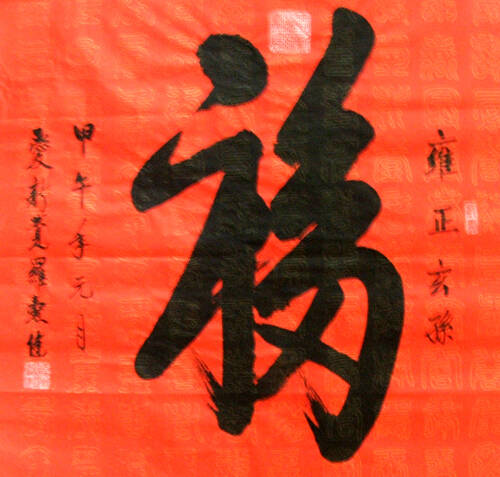 福
雍正玄孫
甲午年元月
愛新覺羅